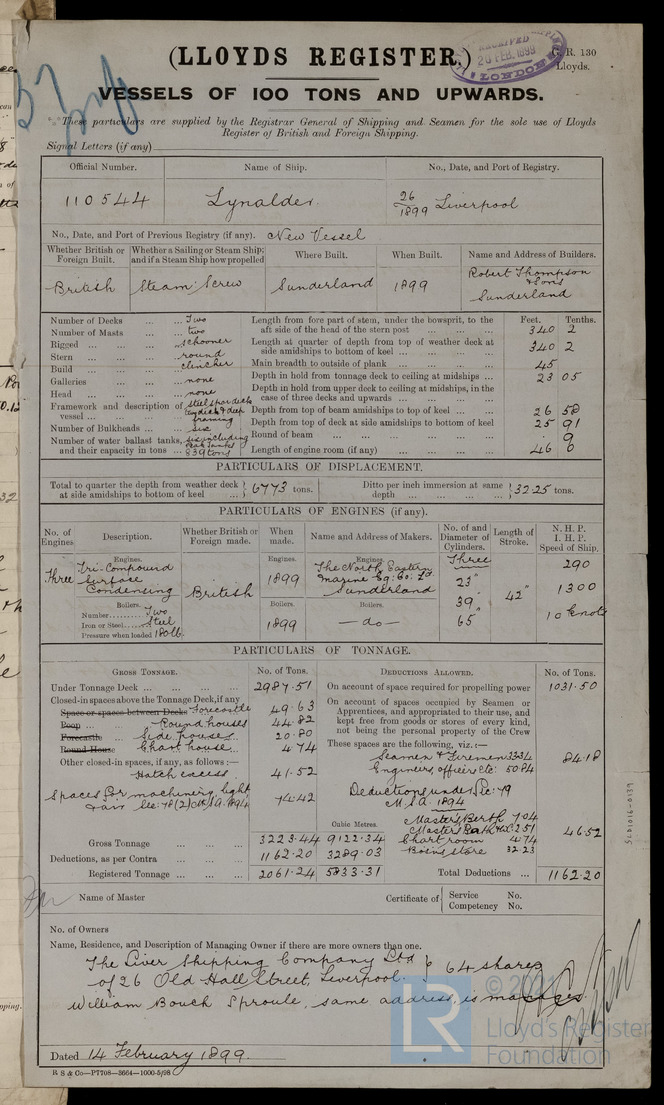 (LLOYDS REGISTER.)
RECEIVED
20 FEB. 1899
LONDON
C. R. 130
Lloyds.
VESSELS OF 100 TONS AND UPWARDS.
These particulars are supplied by the Registrar General of Shipping and Seamen for the sole use of Lloyds
Register of British and Foreign Shipping.
Signal Letters (if any)
Official Number. Name of Ship. No., Date, and Port of Registry.
110544 Lynalder 26/1899 Liverpool
No., Date, and Port of Previous Registry (if any). New Vessel
Whether British or Foreign Built. Whether a Sailing or Steam Ship; and if a Steam Ship how propelled Where Built. When Built. Name and Address of Builders.
British Steam: Screw Sunderland 1899 Robert Thompson & Sons Sunderland
Number of Decks ... Two
Number of Masts ... two
Rigged ... schooner
Stern ... round
Build ... clincher
Galleries ... none
Head ... none
Framework and description of vessel ... steel spar deck framing
Number of Bulkheads ... six
Number of water ballast tanks, and their capacity in tons ... six including peak tanks 839 tons
Feet. Tenths.
Length from fore part of stem, under the bowsprit, to the aft side of the head of the stern post ... 340 2
Length at quarter of depth from top of weather deck at side amidships to bottom of keel ... 340 2
Main breadth to outside of plank ... 45
Depth in hold from tonnage deck to ceiling at midships ... 23 05
Depth in hold from upper deck to ceiling at midships, in the case of three decks and upwards ...
Depth from top of beam amidships to top of keel ... 26 58
Depth from top of deck at side amidships to bottom of keel 25 91
Round of beam ... . 9
Length of engine room (if any) ... 46 0
PARTICULARS OF DISPLACEMENT.
Total to quarter the depth from weather deck at side amidships to bottom of keel ... 6773 tons. Ditto per inch immersion at same depth ... 32.25 tons.
PARTICULARS OF ENGINES (if any).
No. of Engines. Description. Whether British or Foreign made. When made. Name and Address of Makers. No. of and Diameter of Cylinders. Length of Stroke. N. H. P. I. H. P. Speed of Ship.
Three Engines. Tri-Compound Surface Condensing British Engines. 1899 Engines. The North Eastern Marine Eng: Co: Ld Sunderland Three 23" 39" 65" 42" 290 1300 10 knots
Boilers. Number Two
Iron or Steel Steel
Pressure when loaded 180 lb.
Boilers. 1899 Boilers. — do —
PARTICULARS OF TONNAGE.
GROSS TONNAGE. No. of Tons.
Under Tonnage Deck ... 2987.51
Closed-in spaces above the Tonnage Deck, if any
Space or spaces between Decks Forecastle 49.63
Poop ... Round houses 44.82
Forecastle ... Side houses 20.80
Round House Chart house 4.74
Other closed-in spaces, if any, as follows:—
Hatch excess 41.52
Spaces for machinery, light, & air Sec: 78(2) M.S.A. 1894 74.42
Cubic Metres.
Gross Tonnage ... 3223.44 9122.34
Deductions, as per Contra ... 1162.20 3289.03
Registered Tonnage ... 2061.24 5833.31
DEDUCTIONS ALLOWED. No. of Tons.
On account of space required for propelling power 1031.50
On account of spaces occupied by Seamen or Apprentices, and appropriated to their use, and kept free from goods or stores of every kind, not being the personal property of the Crew
These spaces are the following, viz.:—
Seamen & Firemen 33.34
Engineers, officers etc: 50.84
84.18
Deductions under Sec: 79
M.S.A. 1894
Master's Berth 7.04
Chart room 4.74
Bosns store 32.23
46.52
Total Deductions ... 1162.20
Name of Master Certificate of Service No.
Competency No.
No. of Owners
Name, Residence, and Description of Managing Owner if there are more owners than one.
The Liver Shipping Company Ltd
of 26 Old Hall Street, Liverpool. } 64 shares
William Bouch Sproule, same address, is manager
Dated 14 February 1899.
R S & Co—P7708—3664—1000-5/98
LR
© 2021
Lloyd's Register
Foundation